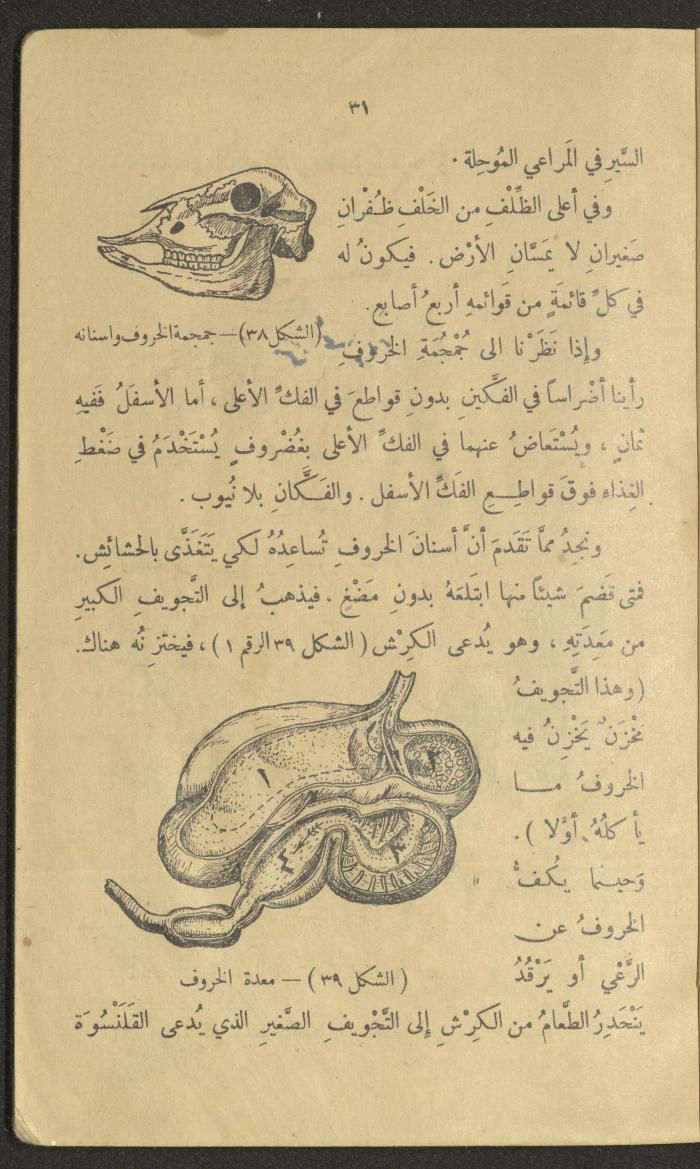 ٣١
السَّيرِ في المَراعي المُوحِلة .
وفي أعلى الظِّلْفِ من الخَلْفِ ظُفْرانِ
صَغيرانِ لا يَمَسَّانِ الأرْض . فيكونُ له
في كلِّ قائمَةٍ من قوائمهِ أربعُ أصابع .
(الشكل ٣٨) — جمجمة الخروف واسنانه
وإذا نَظَرْنا الى جُمْجُمَةِ الخروفِ
رأينا أضْراساً في الفَكَّينِ بدونِ قواطعَ في الفكِّ الأعلى ، أما الأسفَلُ فَفيهِ
ثمانٍ ، ويُسْتَعاضُ عنهما في الفكِّ الأعلى بغُضْروفٍ يُسْتَخْدَمُ في ضَغْطِ
الغِذاءِ فوقَ قواطِعِ الفَكِّ الأسفل . والفَكَّانِ بلا نُيوب .
ونجِدُ ممَّا تَقَدمَ أنَّ أسنانَ الخروفِ تُساعِدُهُ لكي يَتَغَذَّى بالحشائِش .
فمتى قَضمَ شيئاً منها ابتَلعَهُ بدونِ مَضْغٍ . فيذهبُ إلى التَّجويفِ الكبيرِ
من مَعِدَتِهِ ، وهو يُدعى الكِرْش ( الشكل ٣٩ الرقم ١ ) ، فيختزِنُه هناك .
( وهذا التَّجويفُ
مَخْزَنٌ يَخْزِنُ فيه
الخروفُ ما
يأكلُهُ أوَّلا ) .
وَحينما يكُفُّ
الخروفُ عن
الرَّعْي أو يَرْقُدُ
١
٢
٣
٤
( الشكل ٣٩ ) — معدة الخروف
يَنْحَدِرُ الطَّعامُ من الكِرْشِ إلى التَّجْويفِ الصَّغيرِ الذي يُدعى القَلَنْسُوَة